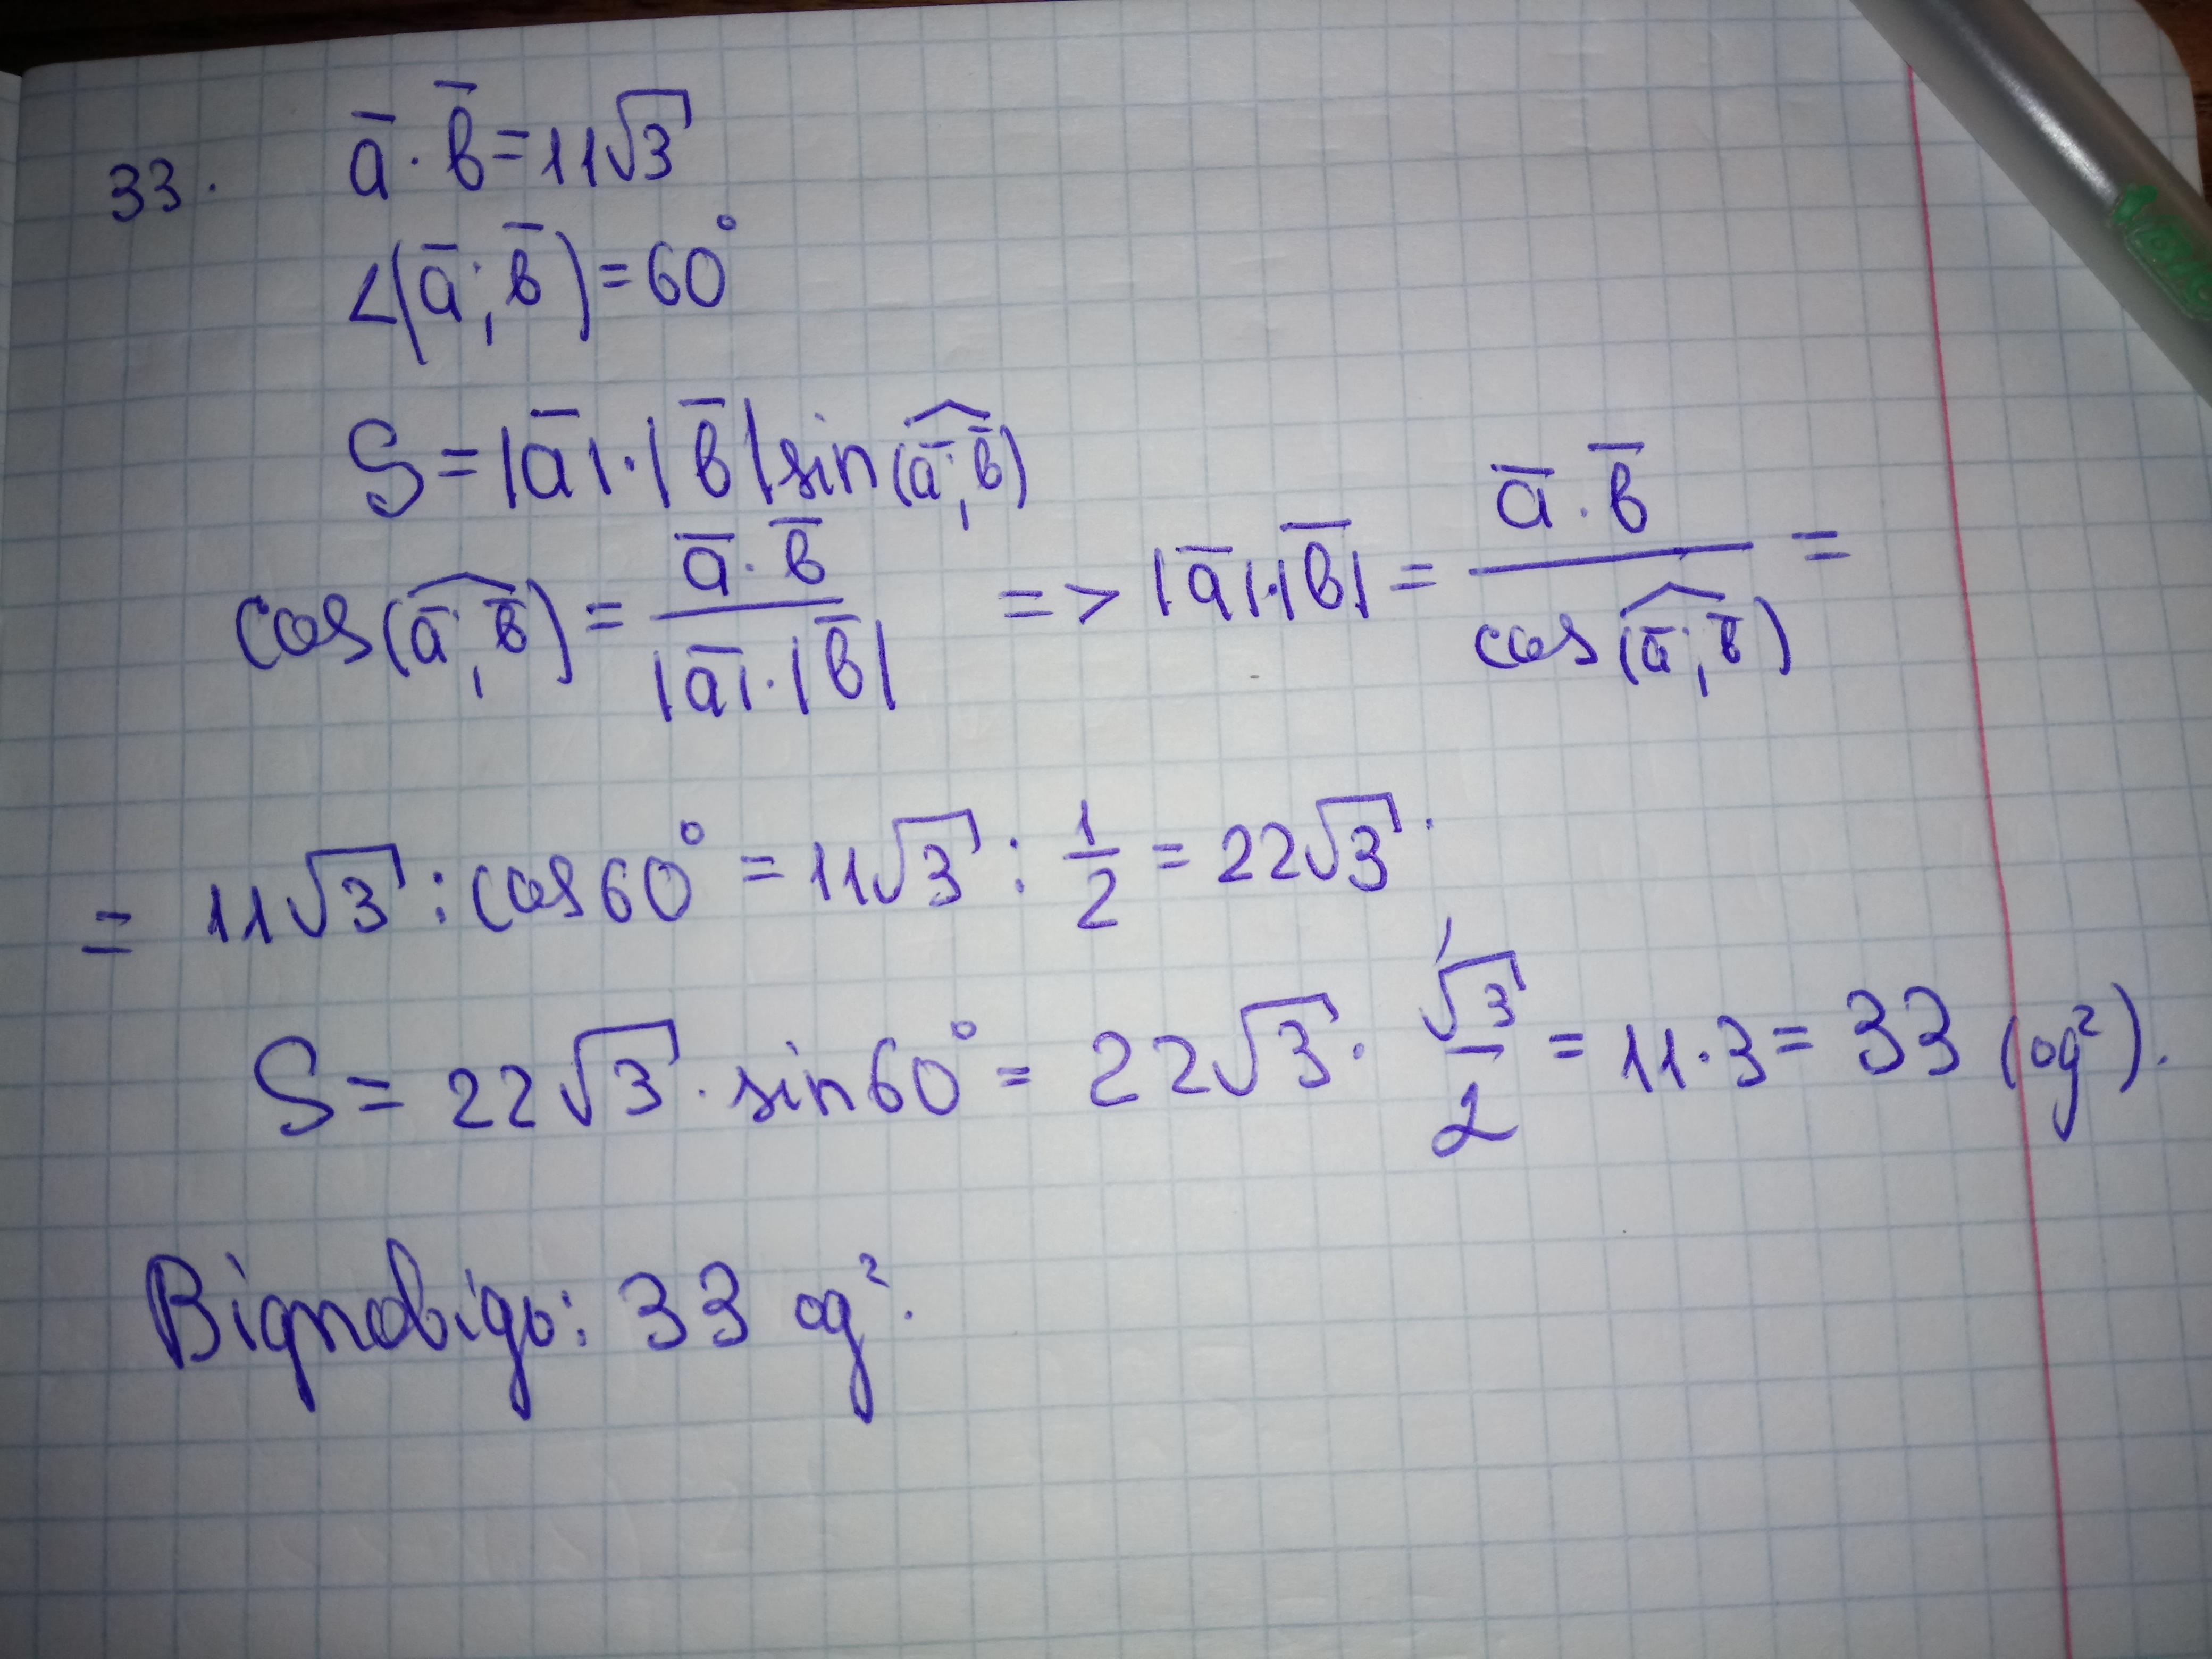 33. ā · b̄ = 11√3
∠(ā; b̄) = 60°
S = |ā| · |b̄| sin(ā; b̄)
cos(ā; b̄) = (ā · b̄)/(|ā| · |b̄|) => |ā| · |b̄| = (ā · b̄)/cos(ā; b̄) =
= 11√3 : cos 60° = 11√3 : 1/2 = 22√3.
S = 22√3 · sin 60° = 22√3 · √3/2 = 11 · 3 = 33 (од²).
Відповідь: 33 од².